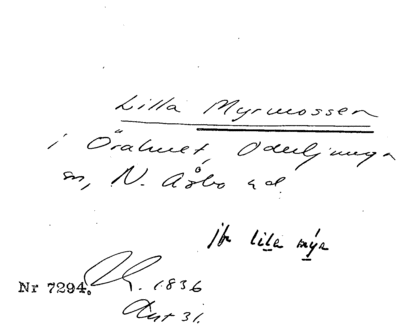 Lilla Myrmossen
i Örahult, Oderljunga
sn, N. Åsbo hd.
jfr lila mýra
Nr 7294. 1836
Akt 31.